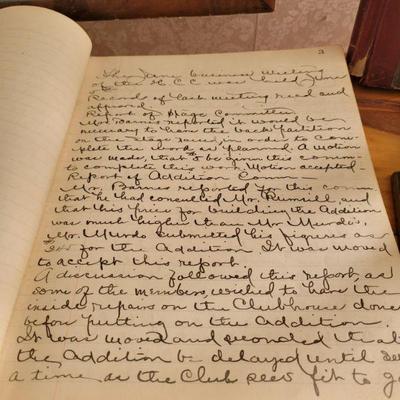 3
The June business meeting
of the H.C.C. was held June
Records of last meeting read and
approved.
Report of Stage Committee
Mrs. reported it would be
necessary to have the back partitions
on the stage raised, in order to com-
plete the work as planned. A motion
was made, that be given this comm-
to complete this work. Motion accepted.
Report of Addition Comm.
Mr. Barnes reported for this comm.
that he had consulted Mr. Rumsill, and
that his price for building the Addition
was much higher than Mr. Murdo's.
Mr. Murdo submitted his figures as
$245 for the Addition. It was moved
to accept this report.
A discussion followed this report, as
some of the members, wished to have the
inside repairs on the Clubhouse done
before putting on the addition.
It was moved and seconded that
the Addition be delayed until
a time, as the Club sees fit to go